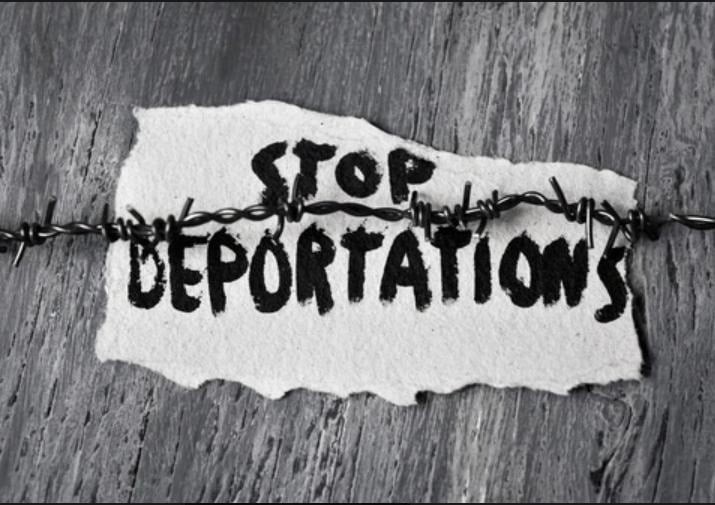 STOP
DEPORTATIONS